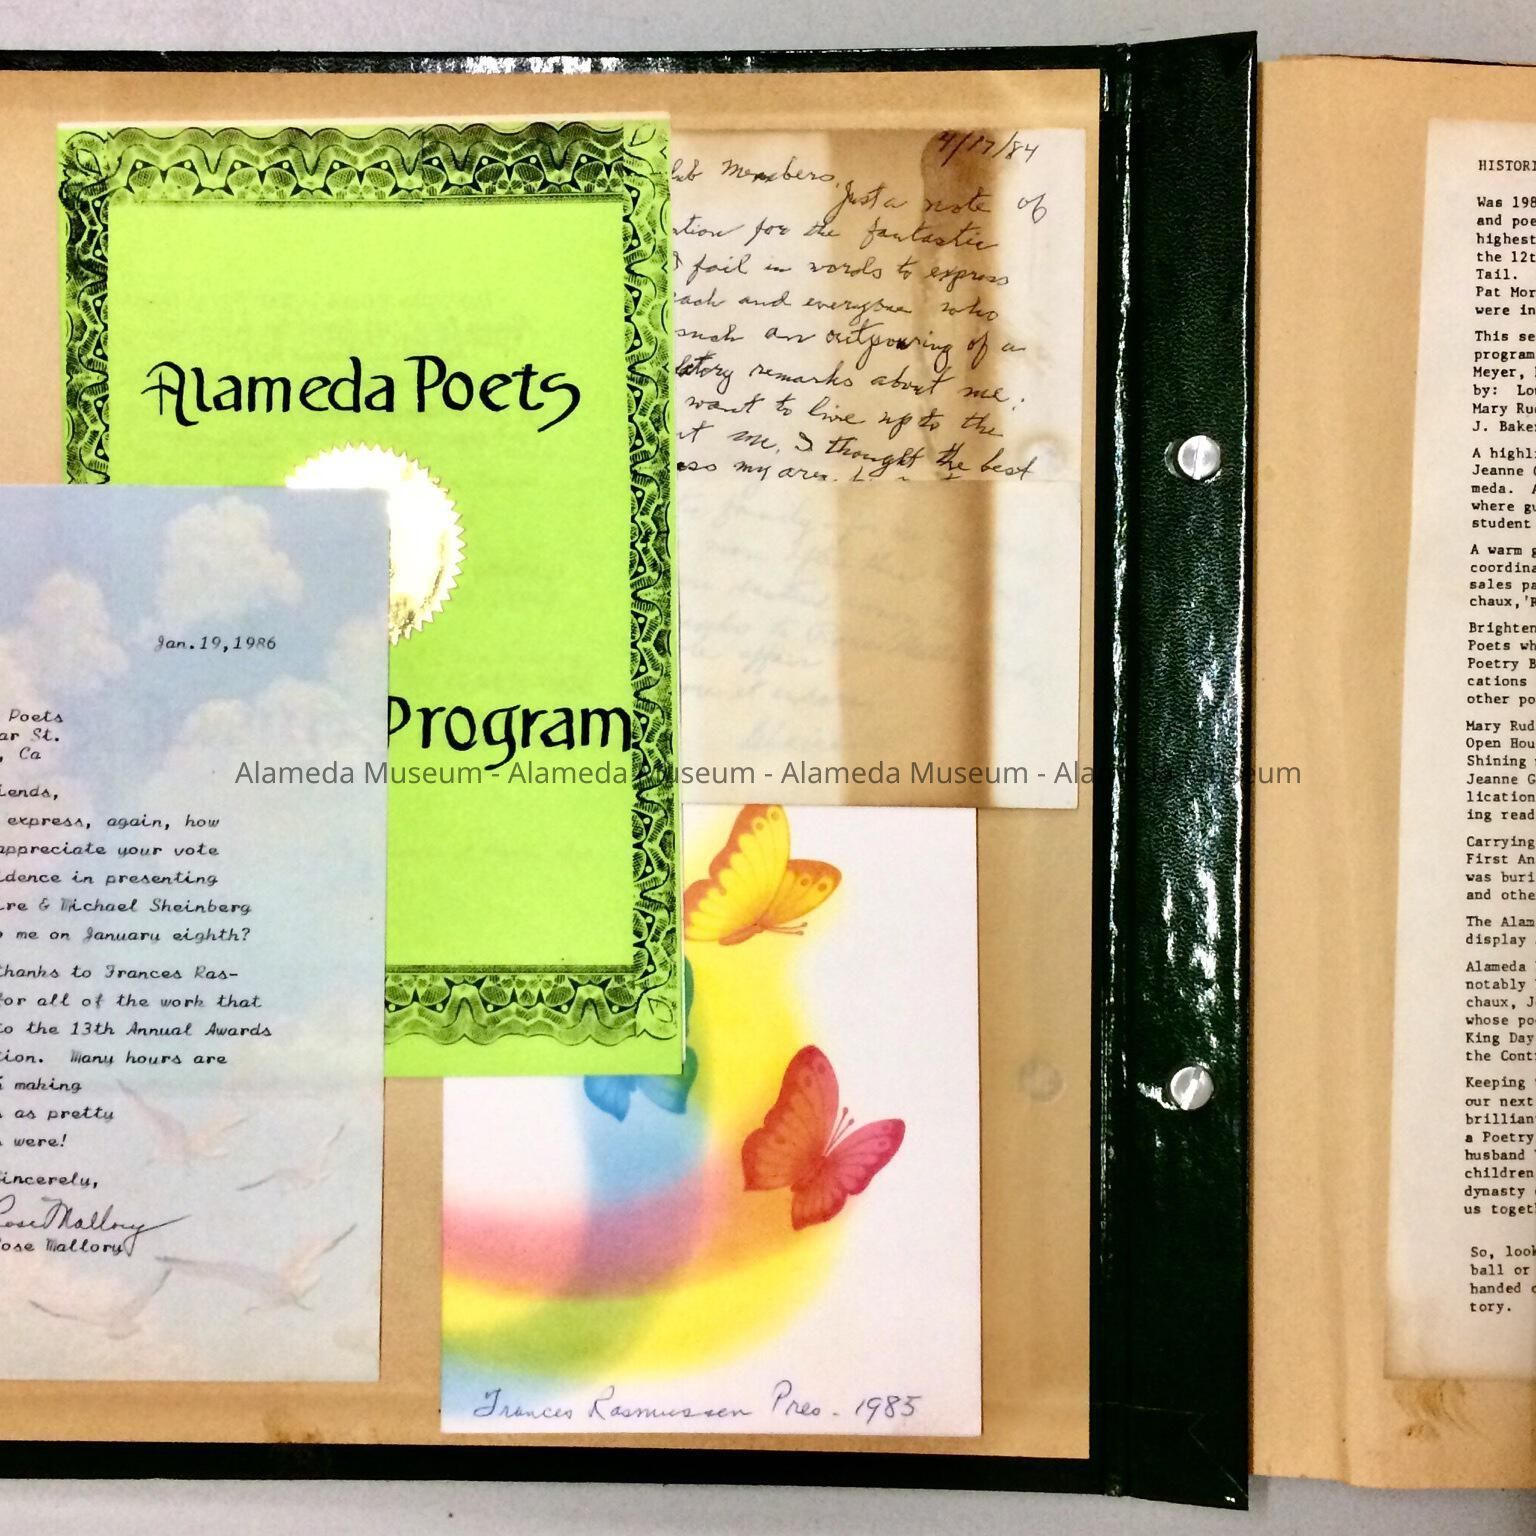 Alameda Poets
Program
4/17/84
Members,
Just a note of
for the fantastic
I fail in words to express
each and everyone who
such an outpouring of a
remarks about me.
want to live up to the
me. I thought the best
my area.
Jan.19,1986
Poets
ar St.
, Ca
iends,
express, again, how
appreciate your vote
idence in presenting
ire & Michael Sheinberg
o me on January eighth?
thanks to Frances Ras-
for all of the work that
to the 13th Annual Awards
tion. Many hours are
making
as pretty
were!
incerely,
Rose Mallory
ose Mallory
Frances Rasmussen Pres. - 1985
HISTORI
Was 198
and poe
highest
the 12t
Tail.
Pat Mor
were in
This se
program
Meyer,
by: Lo
Mary Ru
J. Bake
A highli
Jeanne
meda. A
where gu
student
A warm g
coordina
sales pa
chaux, 'R
Brighten
Poets wh
Poetry B
cations
other po
Mary Rud
Open Hou
Shining
Jeanne G
lication
ing read
Carrying
First An
was buri
and othe
The Alam
display
Alameda
notably
chaux, J
whose po
King Day
the Cont
Keeping
our next
brillian
a Poetry
husband
children
dynasty
us toget
So, look
ball or
handed
tory.
Alameda Museum - Alameda Museum - Alameda Museum - Alameda Museum